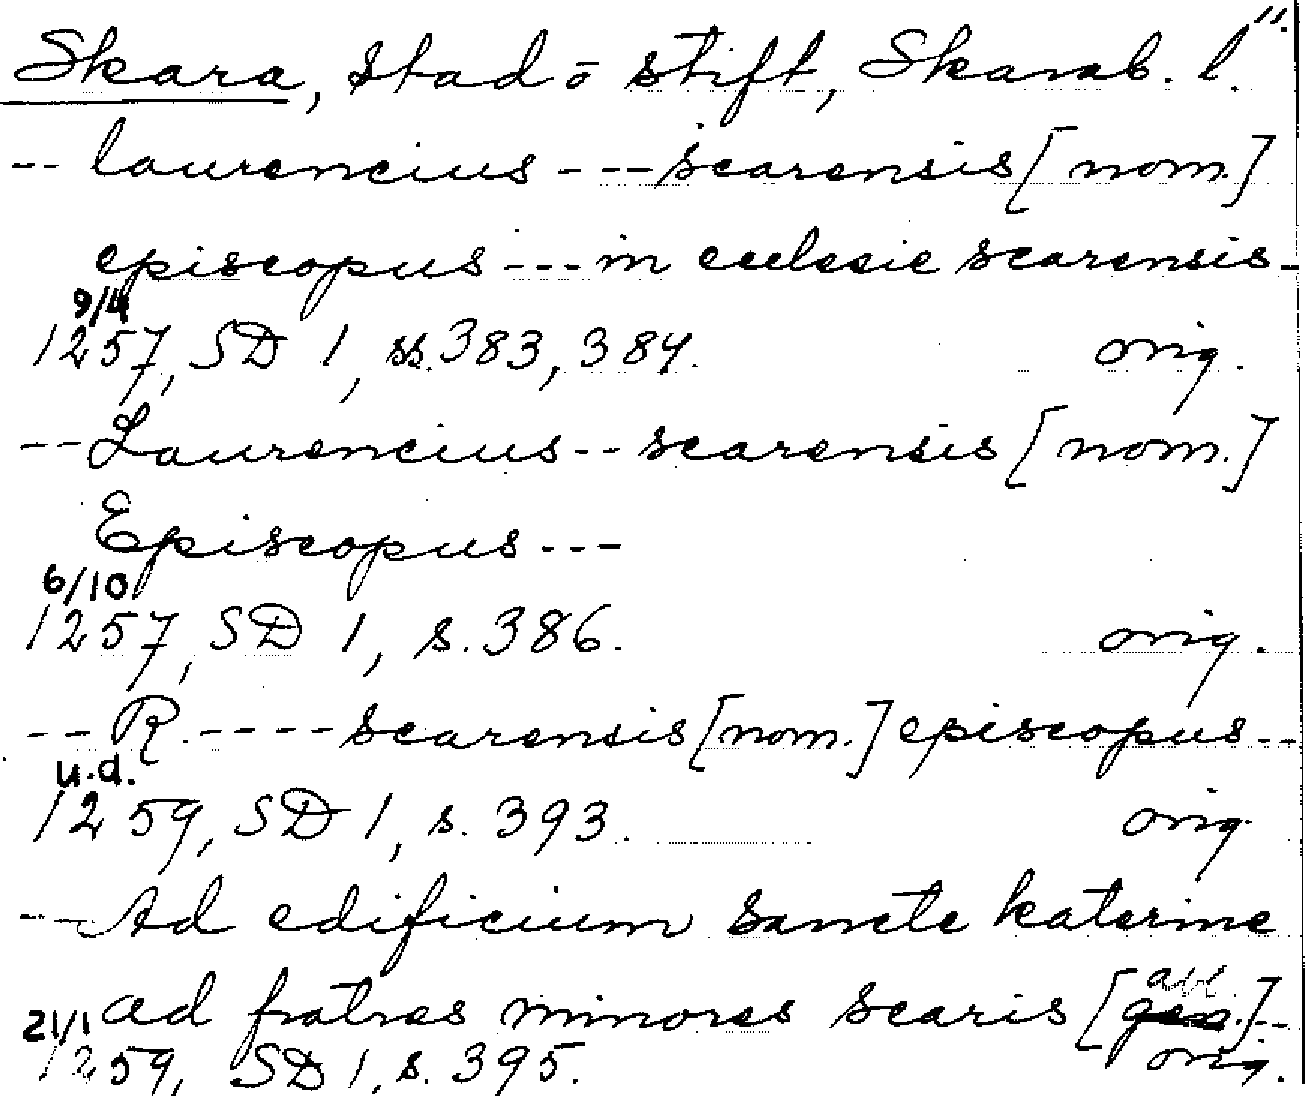 Skara, stad o stift, Skarab. l. 11.
-- laurencius --- scarensis [nom.]
episcopus --- in ecclesie scarensis -
9/4
1257, SD 1, ss. 383, 384. orig.
-- Laurencius -- scarensis [nom.]
Episcopus ---
6/10
1257, SD 1, s. 386. orig.
-- R. ---- scarensis [nom.] episcopus --
u.d.
1259, SD 1, s. 393. orig
-- Ad edificium sancte katerine
abl.
ad fratres minores scaris [gen.] --
21/1
1259, SD 1, s. 395. orig.